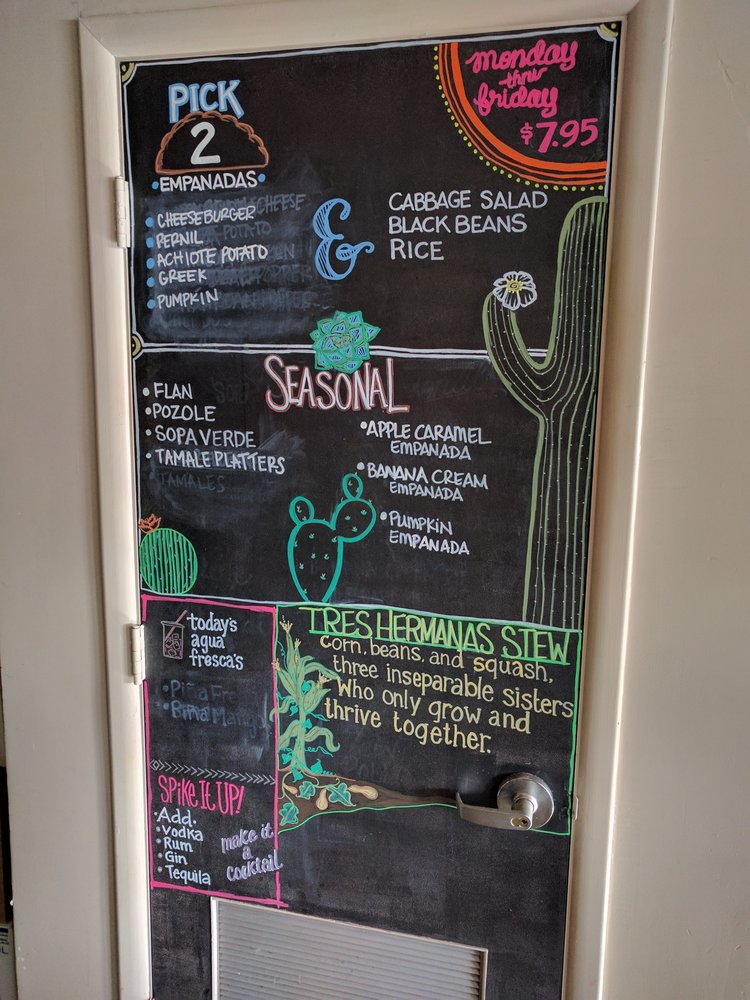 monday
thru
friday
$7.95
PICK
2
•EMPANADAS•
• CHEESEBURGER
• PERNIL
• ACHIOTE POTATO
• GREEK
• PUMPKIN
&
CABBAGE SALAD
BLACK BEANS
RICE
SEASONAL
• FLAN
• POZOLE
• SOPA VERDE
• TAMALE PLATTERS
TAMALES
• APPLE CARAMEL
EMPANADA
• BANANA CREAM
EMPANADA
• PUMPKIN
EMPANADA
today's
agua
fresca's
• Piña
SPIKE IT UP!
• Add.
• Vodka
• Rum
• Gin
• Tequila
make it
a
cocktail
TRES HERMANAS STEW
Corn, beans, and squash,
three inseparable sisters
Who only grow and
thrive together.